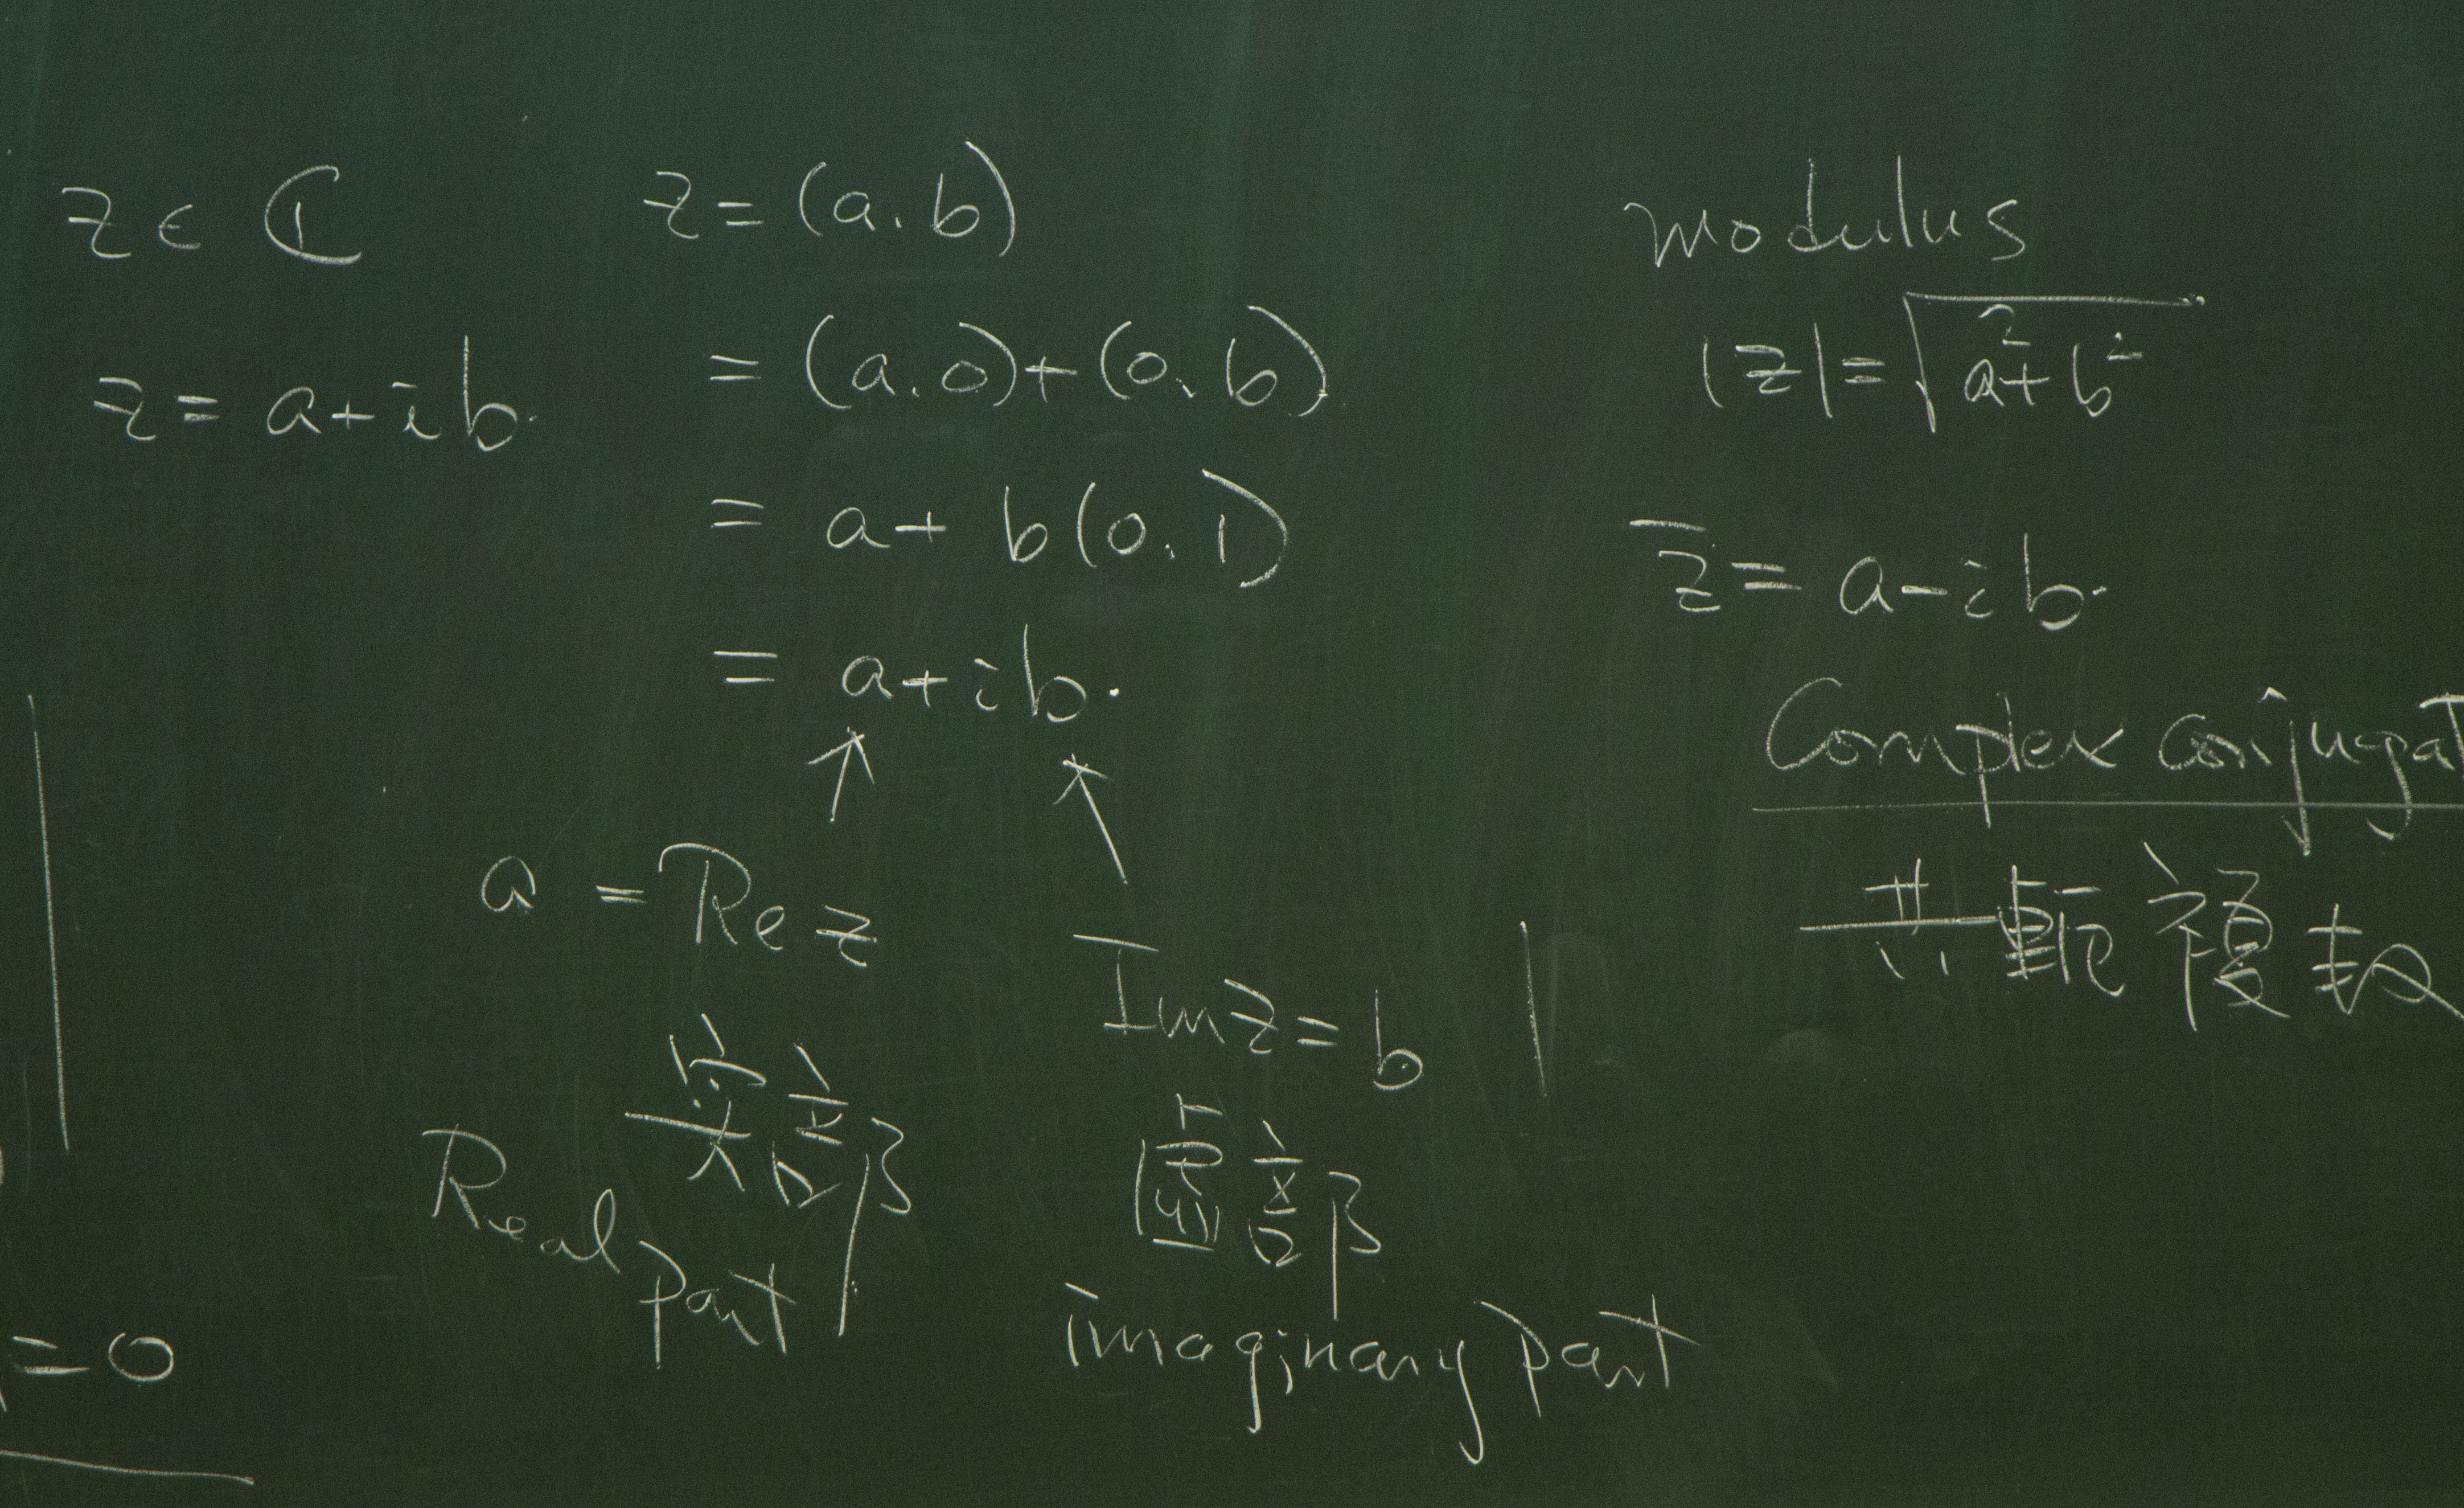 z ∈ ℂ
z = a + ib.
z = (a. b)
= (a. 0) + (0. b)
= a + b(0. 1)
= a + ib.
a = Re z
実部
Real part
Im z = b
虚部
imaginary part
modulus
|z| = √(a² + b²)
z̅ = a - ib.
Complex conjugat
共軛複数
= 0